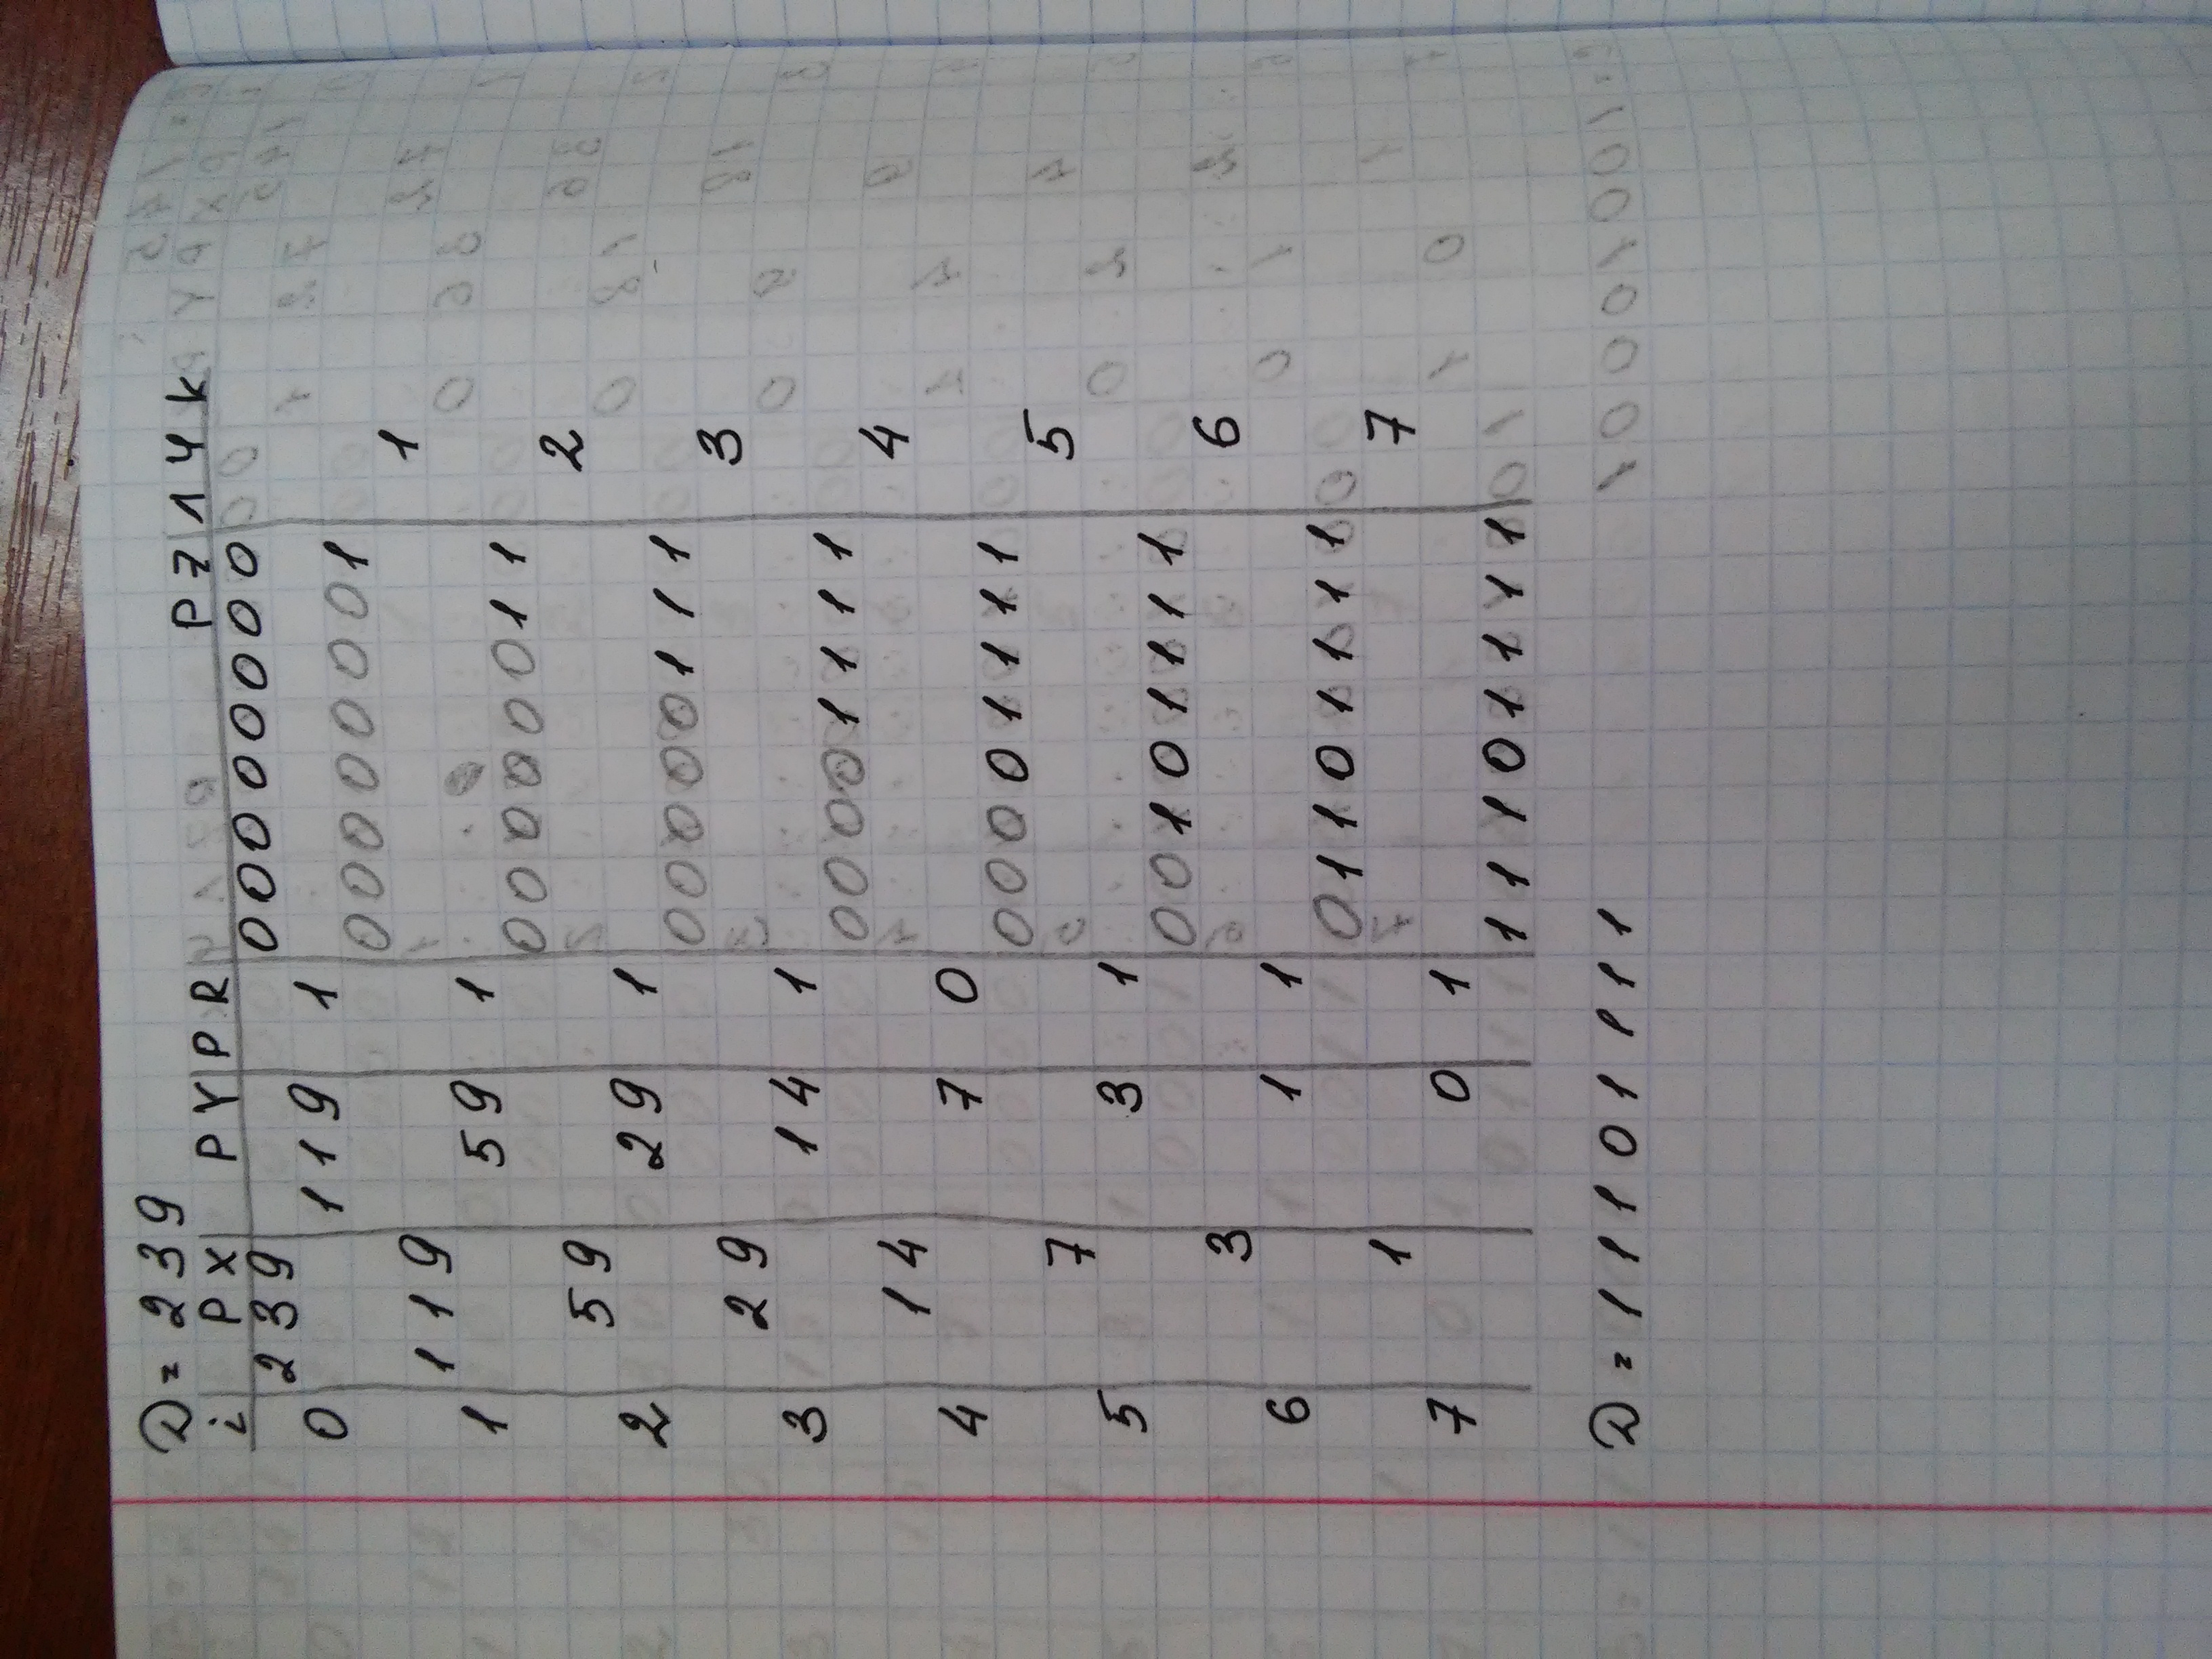 D = 239
i PX PY PR PZ 14 k
239 00000000
0 119 1
00000001
1
119
1 59 1
00000011
2
59
2 29 1
00000111
3
29
3 14 1
00001111
4
14
4 7 0
00001111
5
7
5 3 1
00101111
6
3
6 1 1
01101111
7
1
7 0 1
11101111
D = 11101111